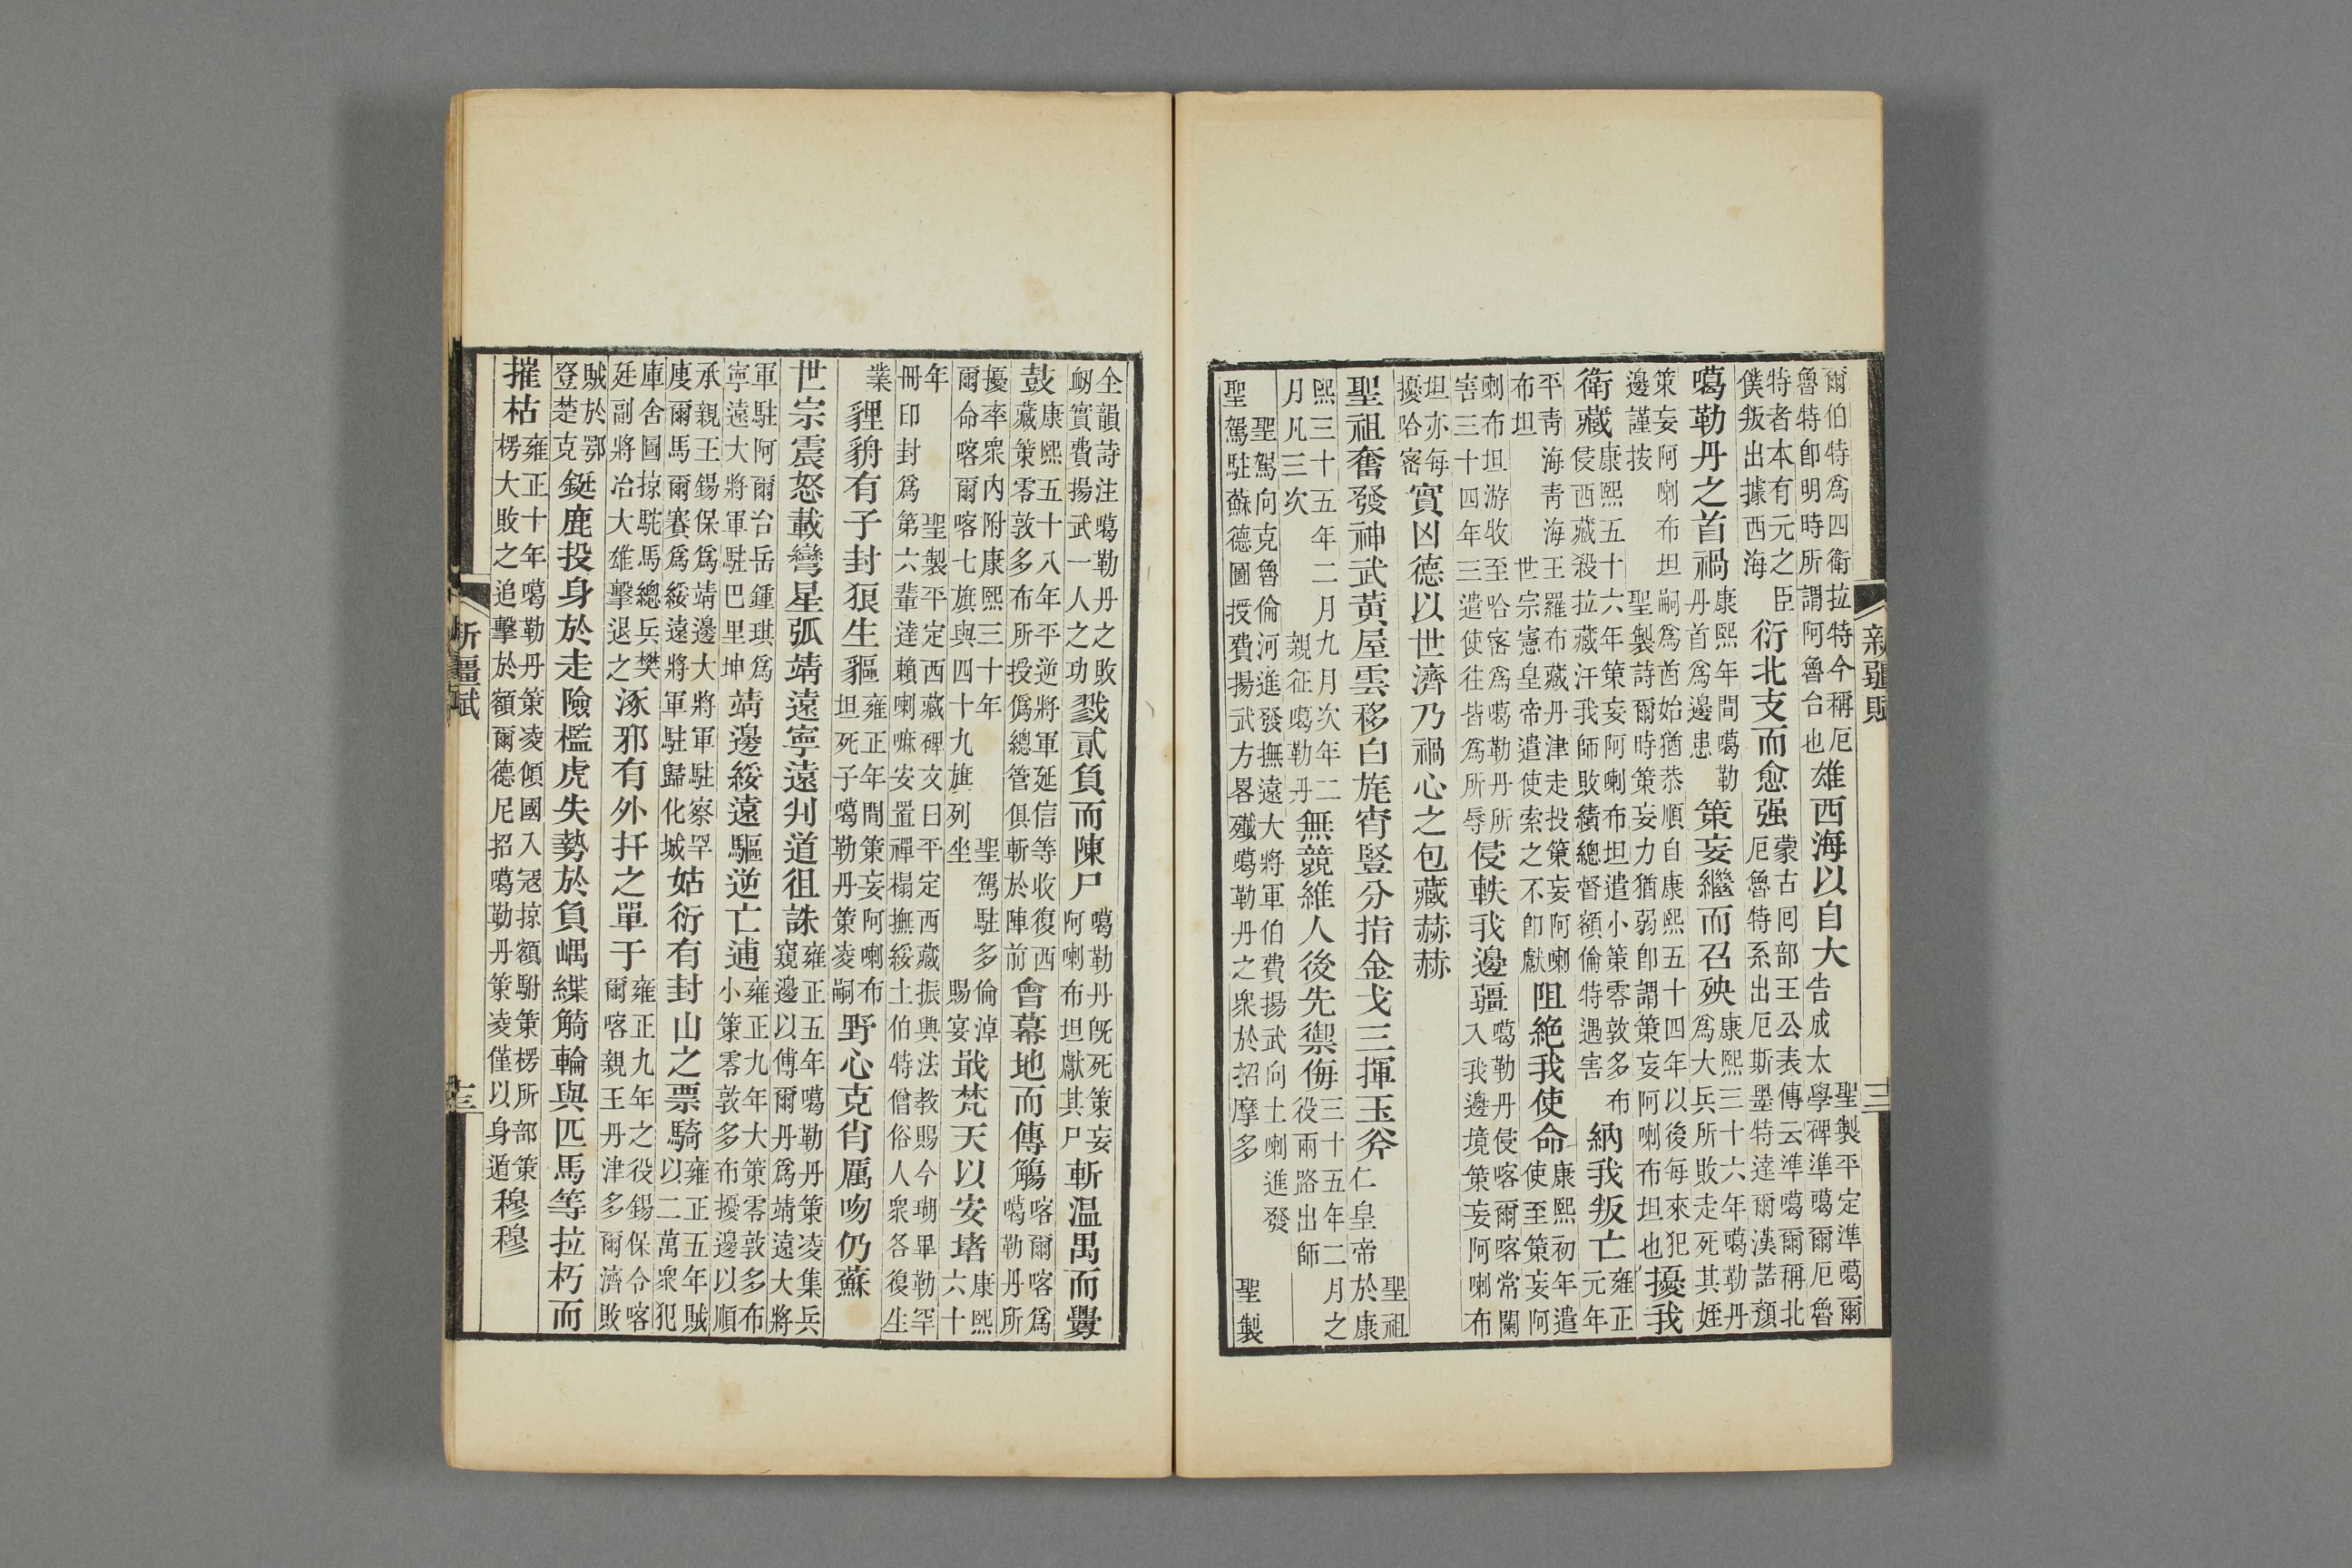 新疆賦
三
爾伯特爲四衛拉特今稱厄魯特卽明時所謂阿魯台也雄西海以自大聖製平定準噶爾告成太學碑準噶爾厄魯
特者本有元之臣僕叛出據西海衍北支而愈强蒙古囘部王公表傳云準噶爾稱北厄魯特系出厄斯墨特達爾漢諾顏
噶勒丹之首禍康熙年間噶勒丹首爲邊患策妄繼而召殃康熙三十六年噶勒丹爲大兵所敗走死其姪
策妄阿喇布坦嗣爲酋始猶恭順自康熙五十四年以後每來犯邊謹按聖製詩爾時策妄力猶弱卽謂策妄阿喇布坦也擾我
衛藏康熙五十六年策妄阿喇布坦遣小策零敦多布侵西藏殺拉藏汗我師敗績總督額倫特遇害納我叛亡雍正元年
平靑海靑海王羅布藏丹津走投策妄阿喇布坦世宗憲皇帝遣使索之不卽獻阻絶我使命康熙初年遣使至策妄阿
喇布坦游牧至哈密爲噶勒丹所害三十四年三遣使往皆爲所辱侵軼我邊疆噶勒丹侵喀爾喀常闌入我邊境策妄阿喇布
坦亦每擾哈密實凶德以世濟乃禍心之包藏赫赫
聖祖奮發神武黃屋雲移白旄宵豎分指金戈三揮玉斧聖祖仁皇帝於康
熙三十五年二月九月次年二月凡三次親征噶勒丹無競維人後先禦侮三十五年二月之役兩路出師
聖駕向克魯倫河進發撫遠大將軍伯費揚武向土喇進發聖駕駐蘇德圖授費揚武方畧殲噶勒丹之衆於招摩多聖製
全韻詩注噶勒丹之敗衂實費揚武一人之功戮貳負而陳尸噶勒丹旣死策妄阿喇布坦獻其尸斬温禺而釁
鼓康熙五十八年平逆將軍延信等收復西藏策零敦多布所授僞總管俱斬於陣前會幕地而傳觴喀爾喀爲噶勒丹所
擾率衆內附康熙三十年聖駕駐多倫淖爾命喀爾喀七旗與四十九旗列坐賜宴戢梵天以安堵康熙六十
年聖製平定西藏碑文曰平定西藏振興法教賜今瑚畢勒罕冊印封爲第六輩達賴喇嘛安置禪榻撫綏土伯特僧俗人衆各復生
業貍貈有子封狼生貙雍正年間策妄阿喇布坦死子噶勒丹策凌嗣野心克肖厲吻仍蘇
世宗震怒載彎星弧靖遠寧遠判道徂誅雍正五年噶勒丹策凌集兵窺邊以傅爾丹爲靖遠大將
軍駐阿爾台岳鍾琪爲寧遠大將軍駐巴里坤靖邊綏遠驅逆亡逋雍正九年大策零敦多布小策零敦多布擾邊以順
承親王錫保爲靖邊大將軍駐察罕廋爾馬爾賽爲綏遠將軍駐歸化城姑衍有封山之票騎雍正五年賊以二萬衆犯
庫舍圖掠駝馬總兵樊廷副將冶大雄擊退之涿邪有外扞之單于雍正九年之役錫保令喀爾喀親王丹津多爾濟敗
賊於鄂登楚克鋌鹿投身於走險檻虎失勢於負嵎緤觭輪與匹馬等拉朽而
摧枯雍正十年噶勒丹策凌傾國入冦掠額駙策楞所部策楞大敗之追擊於額爾德尼招噶勒丹策凌僅以身遁穆穆
新疆賦
三